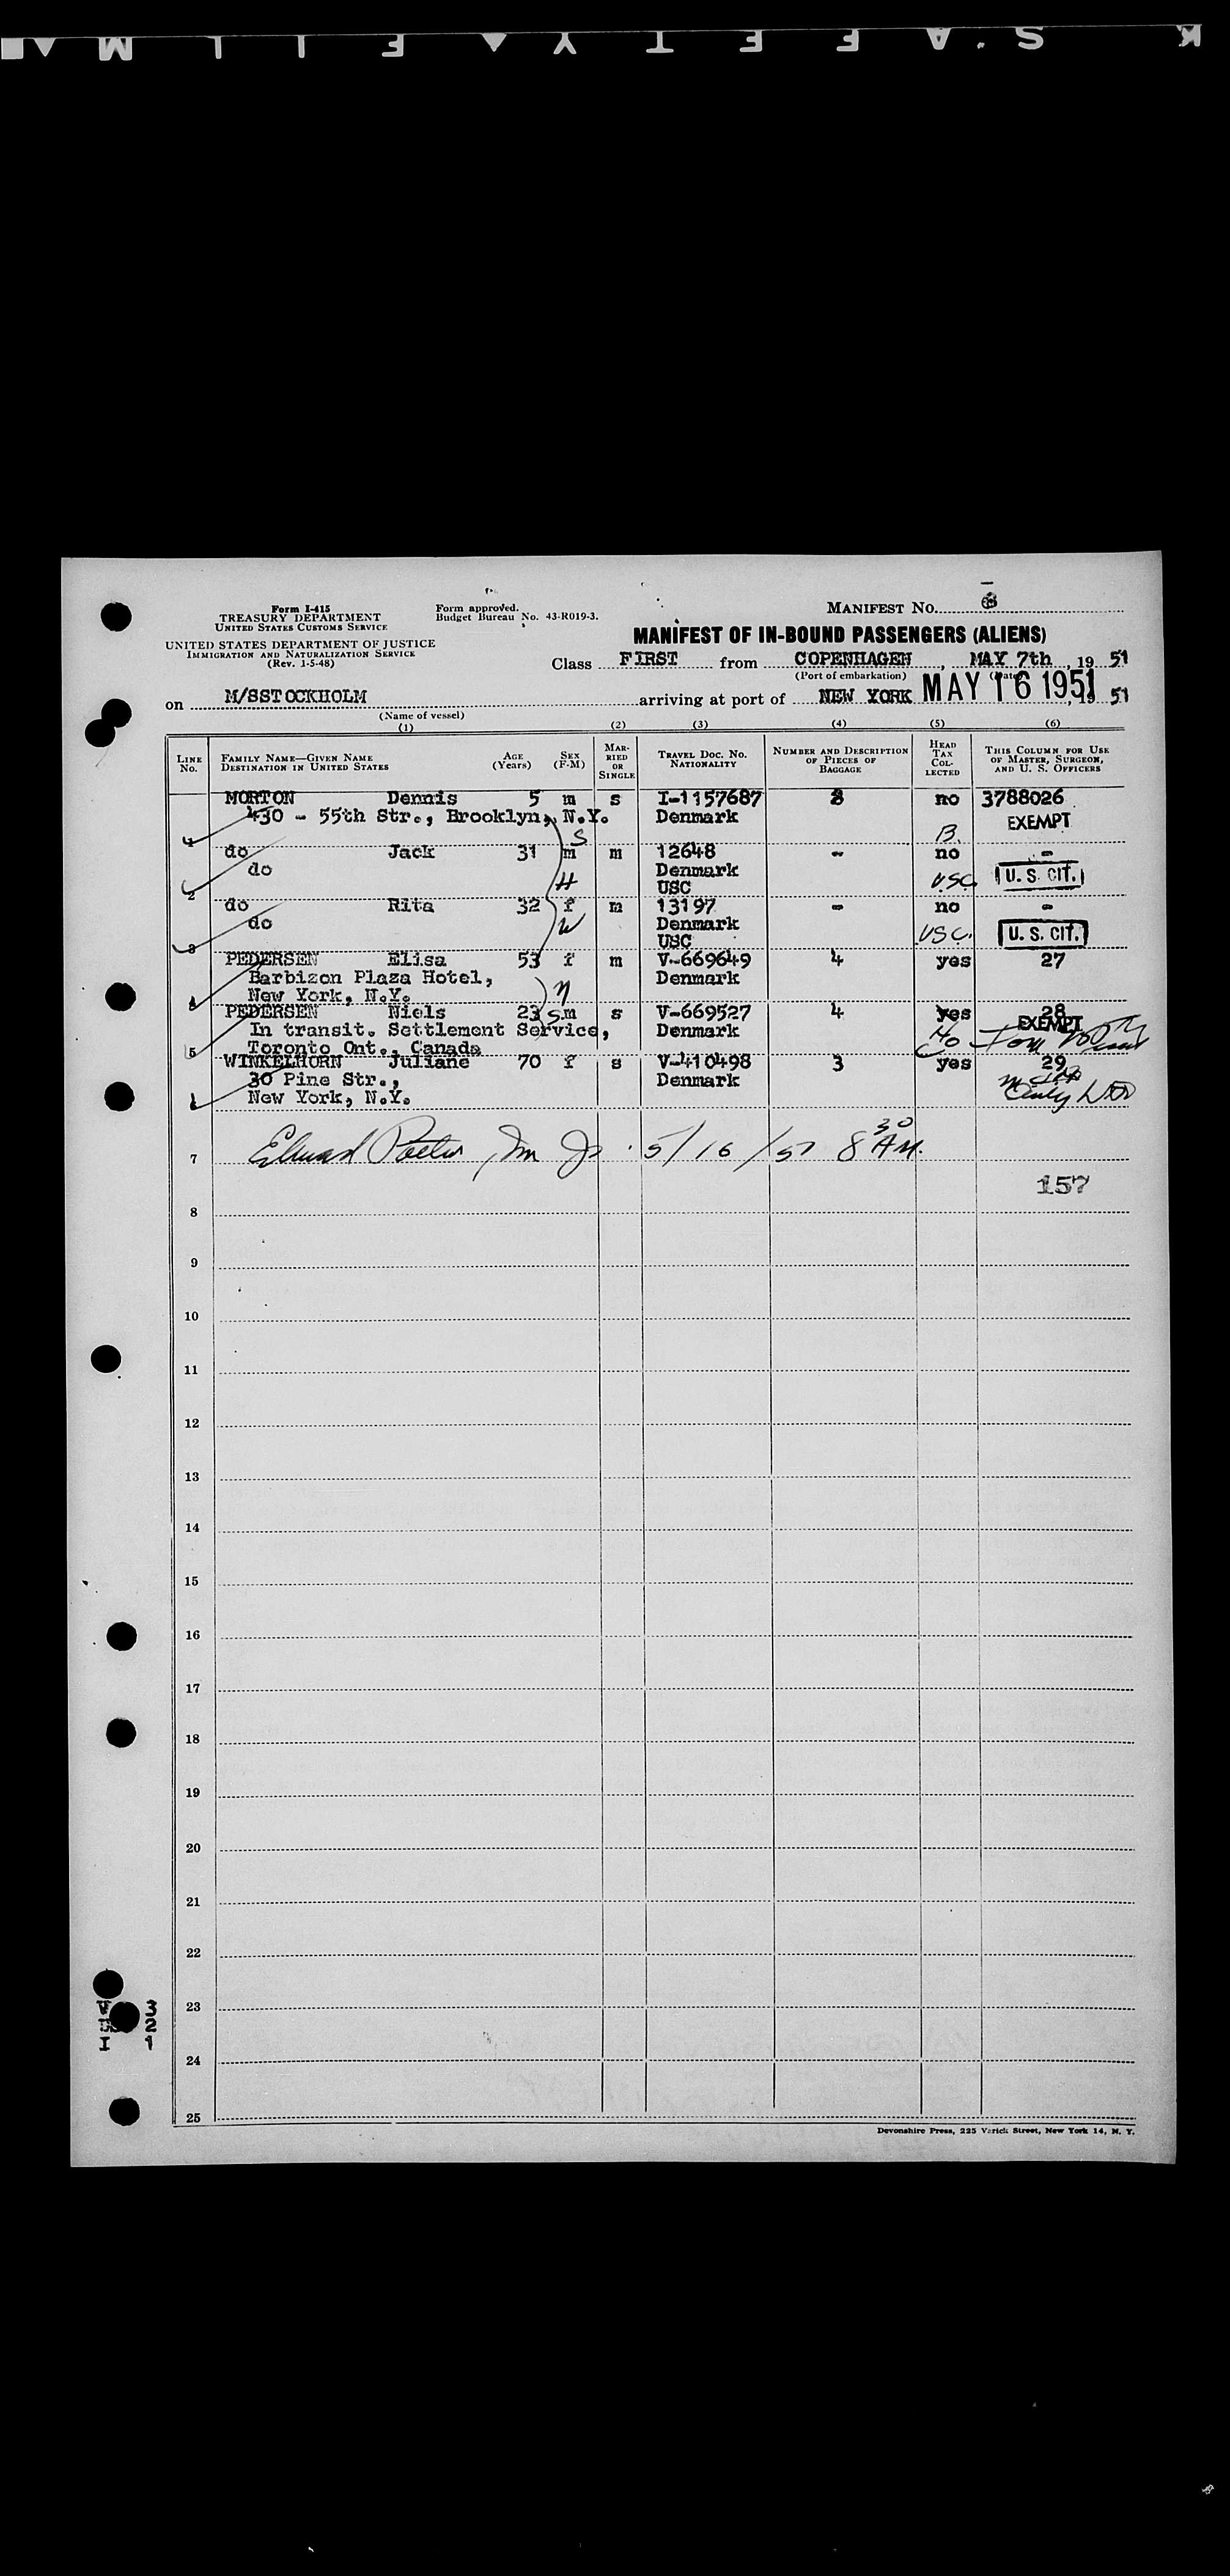 K S.AFETY▲FILM
Form I-415
TREASURY DEPARTMENT
UNITED STATES CUSTOMS SERVICE
UNITED STATES DEPARTMENT OF JUSTICE
IMMIGRATION AND NATURALIZATION SERVICE
(Rev. 1-5-48)
Form approved.
Budget Bureau No. 43-R019-3.
MANIFEST NO.
MANIFEST OF IN-BOUND PASSENGERS (ALIENS)
Class FIRST from COPENHAGEN, MAY 7th, 19 51
(Port of embarkation) (Date)
on M/SSTOCKHOLM arriving at port of NEW YORK MAY 16 1951, 19 51
(Name of vessel)
(1) (2) (3) (4) (5) (6)
LINE NO. FAMILY NAME—GIVEN NAME DESTINATION IN UNITED STATES AGE (Years) SEX (F-M) MARRIED OR SINGLE TRAVEL DOC. NO. NATIONALITY NUMBER AND DESCRIPTION OF PIECES OF BAGGAGE HEAD TAX COLLECTED THIS COLUMN FOR USE OF MASTER, SURGEON, AND U. S. OFFICERS
MORTON Dennis 5 m s I-1157687 8 no 3788026
430 - 55th Str., Brooklyn, N.Y. Denmark EXEMPT
1 S B.
do Jack 31 m m 12648 - no -
do Denmark U. S. CIT.
2 H USC U.S.C.
do Rita 32 f m 13197 - no -
do W Denmark USC. U. S. CIT.
3 USC
PEDERSEN Elisa 53 f m V-669649 4 yes 27
Barbizon Plaza Hotel, Denmark
4 New York, N.Y. M
PEDERSEN Niels 23 S m s V-669527 4 yes 28
In transit. Settlement Service, Denmark EXEMPT
5 Toronto Ont., Canada
WINKELHORN Juliane 70 f s V-410498 3 yes 29
30 Pine Str., Denmark
New York, N.Y.
7 5/16/51 8 30 AM.
157
8
9
10
11
12
13
14
15
16
17
18
19
20
21
22
23
24
25
V 3
2
I 1
Devonshire Press, 225 Varick Street, New York 14, N. Y.